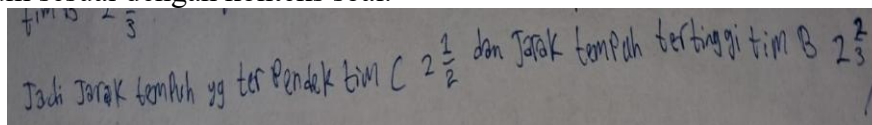 tim B 2 2/3
Jadi Jarak tempuh yg terpendek tim C 2 1/2 dan Jarak tempuh tertinggi tim B 2 2/3